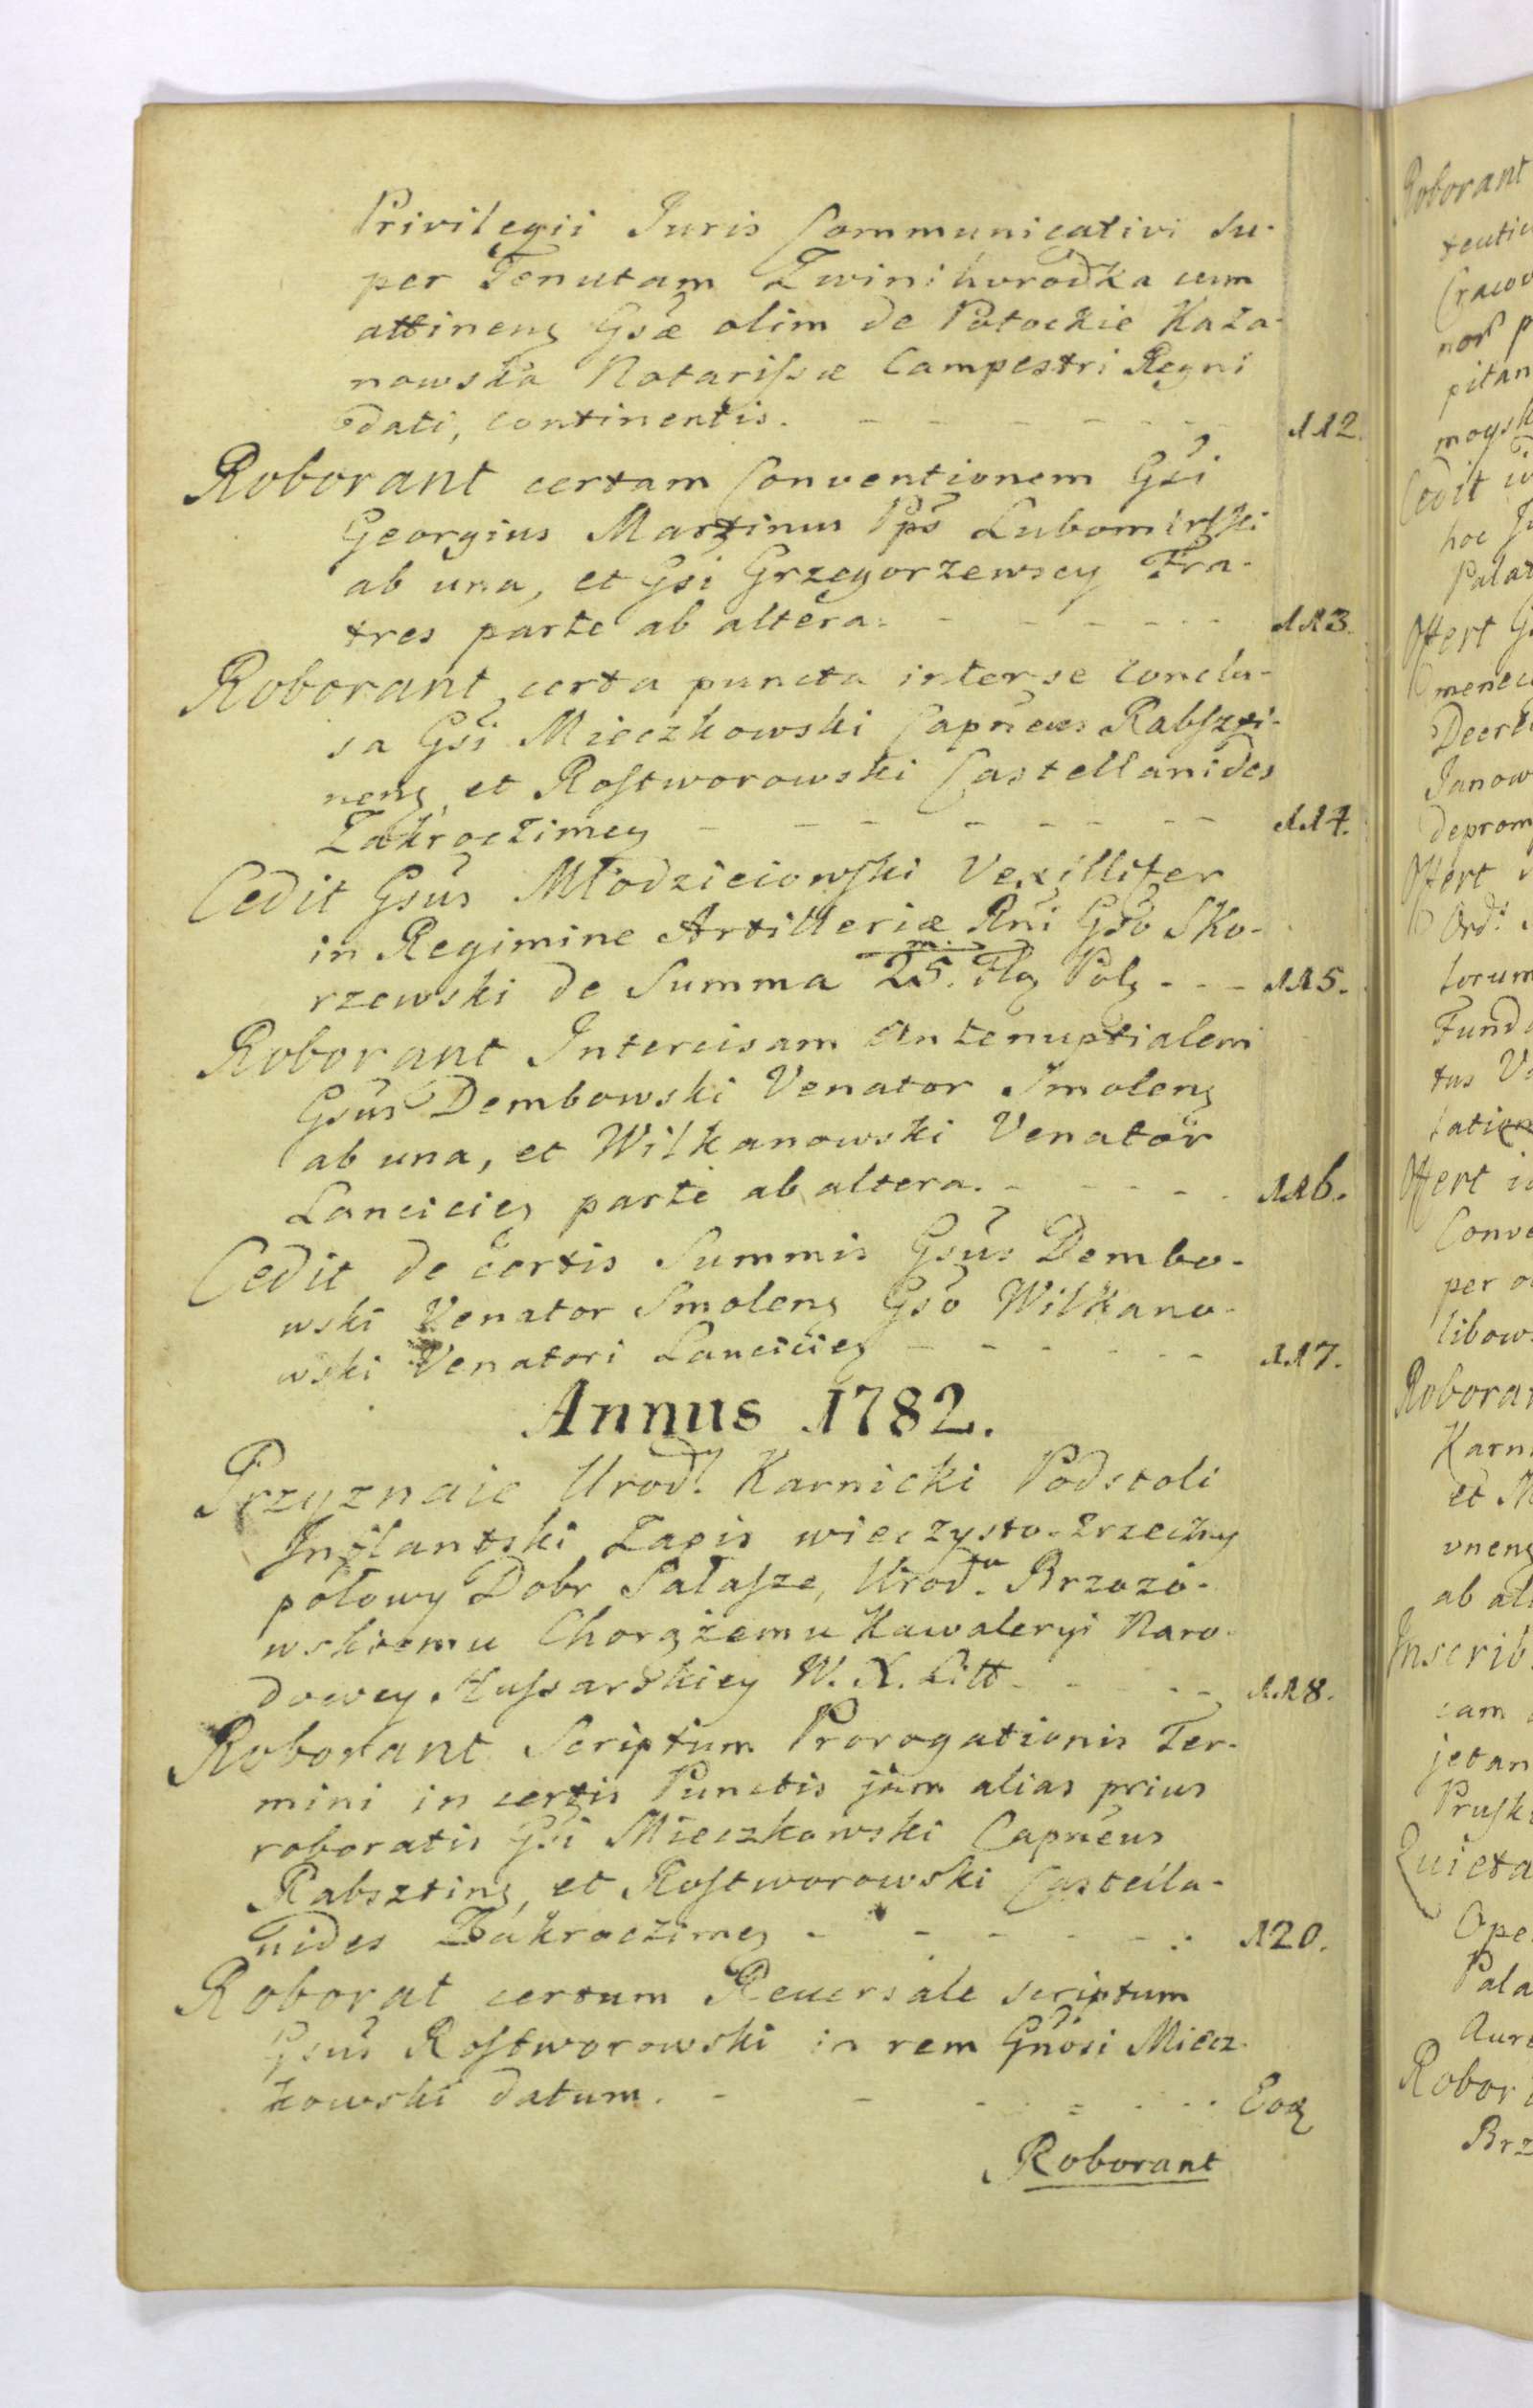 Privilegii Juris Communicativi su-
per Tenutam Zwinihorodka cum
attineng Gsæ olim de Potockie Kaza-
nowska Notarissæ Campestri Regni
dati, continentis. - - - - - - 112.
Roborant certam Conventionem Gsi
Georgius Martinus Pps Lubomirski
ab una, et Gsi Grzegorzewscy Fra-
tres parte ab altera. - - - - - 113.
Roborant certa puncta inter se conclu-
sa Gsi Mieczkowski Capneus Rabszti-
neng et Rostworowski Castellanides
Zakroczimeg - - - - - - - 114.
Cedit Gsus Młodzieiowski Vexillifer
in Regimine Artilleriæ Rni Gso Sko-
rzewski de Summa 25.m. Flg Polg - - - 115.
Roborant Intercisam Antenuptialem
Gsus Dembowski Venator Smoleng
ab una, et Wilkanowski Venator
Lancicieg parte ab altera. - - - - 116.
Cedit de certis Summis Gsus Dembo-
wski Venator Smoleng Gso Wilkano-
wski Venatori Lancicieg - - - - - - 117.
Annus 1782.
Przyznaie Urod. Karnicki Podstoli
Inflantski Zapis wieczysto-zrzeczny
połowy Dobr Sałasze, Urod.mu Brzozo-
wskiemu Chorążemu Kawaleryi Naro-
dowey Hussarskiey W. X. Litt - - - - 118.
Roborant Scriptum Prorogationis Ter-
mini in certis Punctis jam alias prius
roboratis Gsi Mieczkowski Capneus
Rabszting, et Rostworowski Castella-
nides Zakroczimeg - - - - - - 120.
Roborat certum Reuersale scriptum
Gsus Rostworowski in rem Gnosi Miecz-
kowski datum. - - - - - - Eoq
Roborant